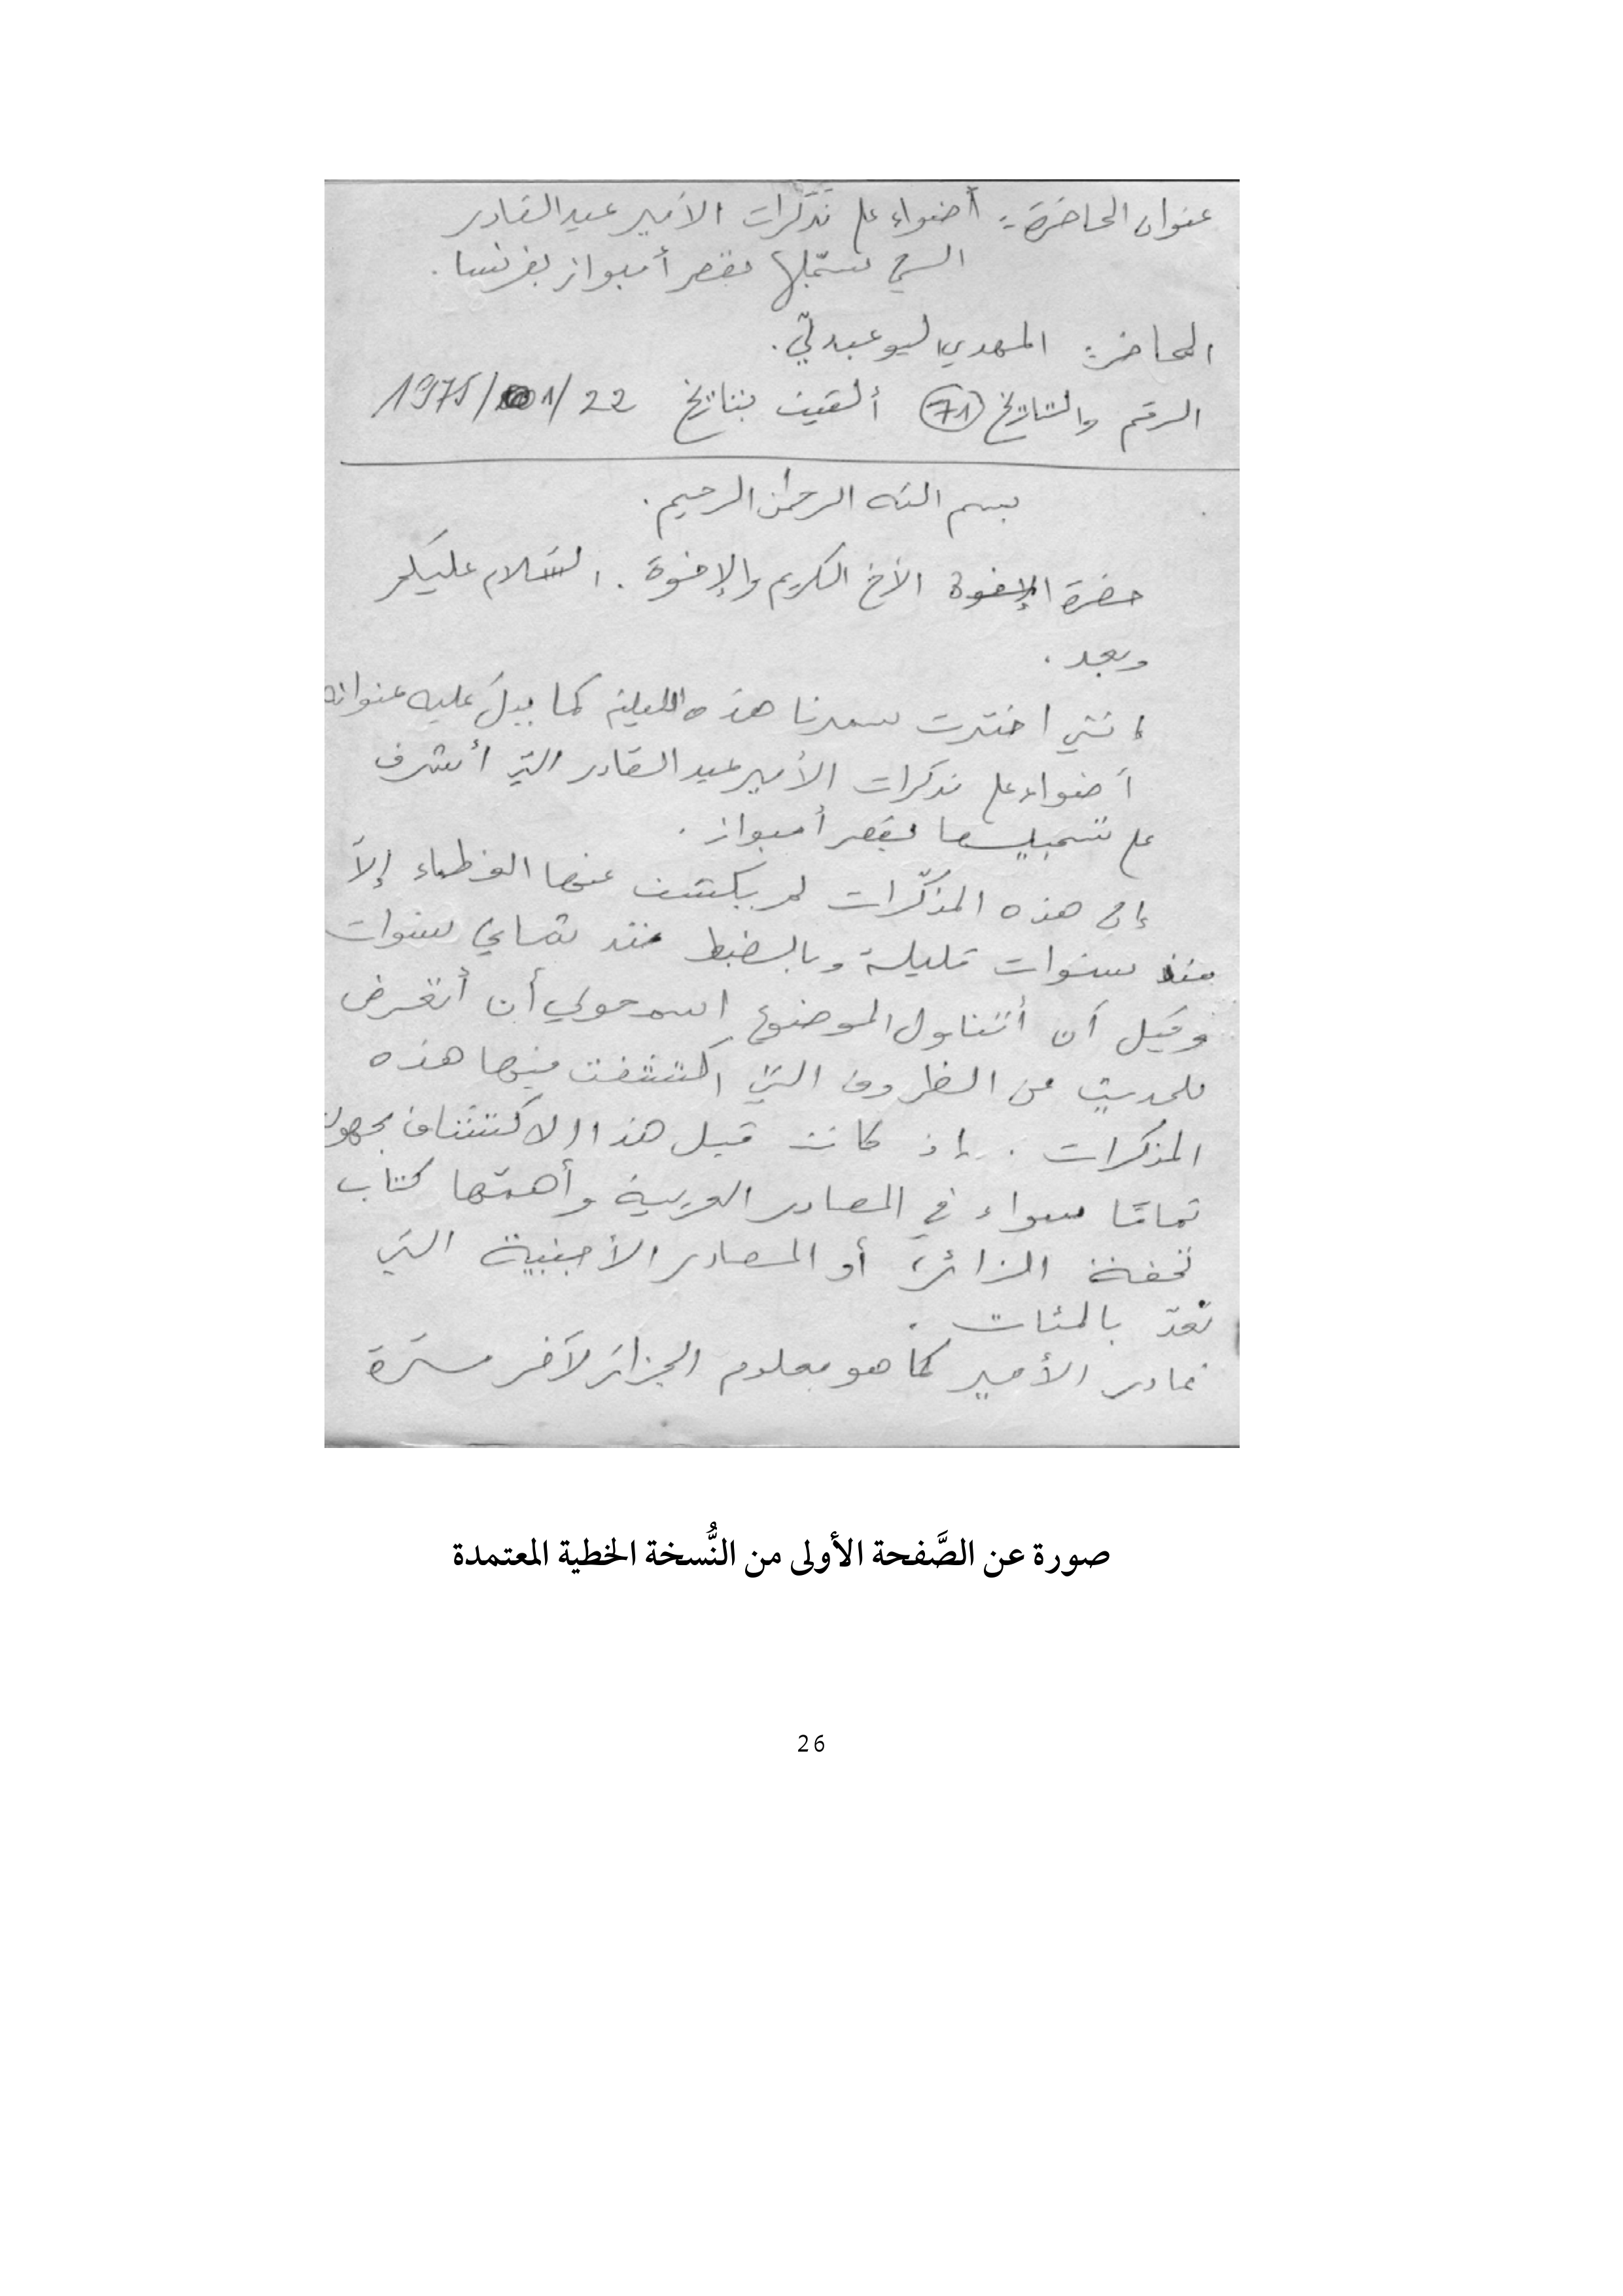 عنوان المحاضرة: أضواء على مذكّرات الأمير عبد القادر
التي سجّلها بقصر أمبواز بفرنسا.
المحاضر: المهدي البوعبدلّي.
الرقم والتاريخ (71) ألقيت بتاريخ 22/01/1975
بسم الله الرحمان الرحيم.
حضرة الأخ الكريم والإخوة. السّلام عليكم
وبعد.
إنني اخترت سمرنا هذه الليلة كما يدلّ عليه عنوانه
أضواء على مذكرات الأمير عبد القادر التي أشرف
على تسجيلها بقصر أمبواز.
إن هذه المذكّرات لم يكتشف عنها الغطاء إلاّ
منذ سنوات قليلة وبالضبط منذ ثماني سنوات
وقبل أن أتناول الموضوع اسمحولي أن أتعرض
للحديث عن الظروف التي اكتشفت فيها هذه
المذكرات. إذ كانت قبل هذا الاكتشاف مجهولة
تمامًا سواء في المصادر العربية وأهمّها كتاب
تحفة الزائر، أو المصادر الأجنبية التي
تعدّ بالمئات.
غادر الأمير كما هو معلوم الجزائر لآخر مرّة
صورة عن الصَّفحة الأولى من النُّسخة الخطية المعتمدة
26